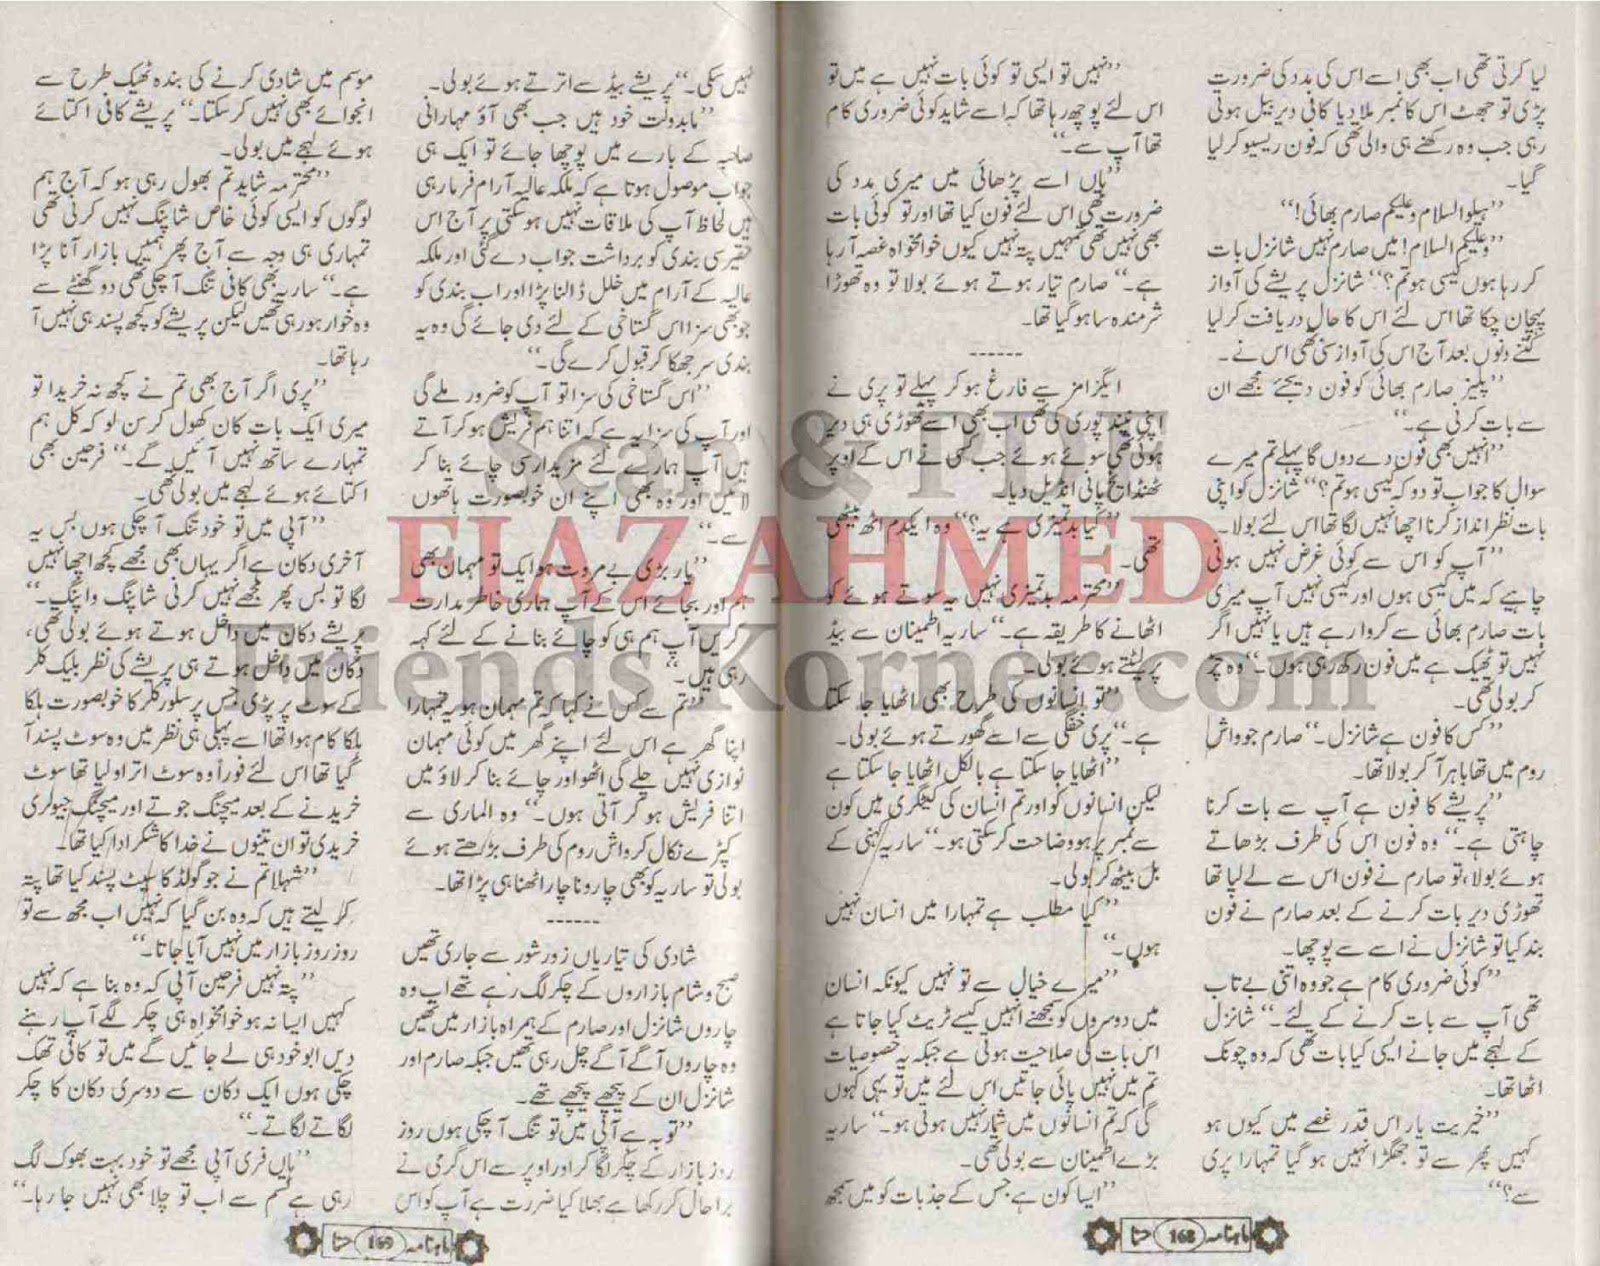 لیا کرتی تھی اب بھی اسے اس کی مدد کی ضرورت
پڑی تو جھٹ اس کا نمبر ملا دیا کافی دیر بیل ہوتی
رہی جب وہ رکھنے ہی والی تھی کہ فون ریسیو کر لیا
گیا۔
”ہیلو السلام وعلیکم صارم بھائی!“
”وعلیکم السلام! میں صارم نہیں شانزل بات
کر رہا ہوں کیسی ہو تم؟“ شانزل پریشے کی آواز
پہچان چکا تھا اس لئے اس کا حال دریافت کر لیا
کتنے دنوں بعد آج اس کی آواز سنی تھی اس نے۔
”پلیز صارم بھائی کو فون دیجئے مجھے ان
سے بات کرنی ہے۔“
”انہیں بھی فون دے دوں گا پہلے تم میرے
سوال کا جواب تو دو کہ کیسی ہو تم؟“ شانزل کو اپنی
بات نظر انداز کرنا اچھا نہیں لگا تھا اس لئے بولا۔
”آپ کو اس سے کوئی غرض نہیں ہونی
چاہیے کہ میں کیسی ہوں اور کیسی نہیں آپ میری
بات صارم بھائی سے کروا رہے ہیں یا نہیں اگر
نہیں تو ٹھیک ہے میں فون رکھ رہی ہوں۔“ وہ چڑ
کر بولی تھی۔
”کس کا فون ہے شانزل۔“ صارم جو واش
روم میں تھا باہر آ کر بولا تھا۔
”پریشے کا فون ہے آپ سے بات کرنا
چاہتی ہے۔“ وہ فون اس کی طرف بڑھاتے
ہوئے بولا، تو صارم نے فون اس سے لے لیا تھا
تھوڑی دیر بات کرنے کے بعد صارم نے فون
بند کیا تو شانزل نے اسے سے پوچھا۔
”کوئی ضروری کام ہے جو وہ اتنی بے تاب
تھی آپ سے بات کرنے کے لئے۔“ شانزل
کے لہجے میں جانے ایسی کیا بات تھی کہ وہ چونک
اٹھا تھا۔
”خیریت یار اس قدر غصے میں کیوں ہو
کہیں پھر سے تو جھگڑا نہیں ہو گیا تمہارا پری
سے؟“
”نہیں تو ایسی تو کوئی بات نہیں ہے میں تو
اس لئے پوچھ رہا تھا کہ اسے شاید کوئی ضروری کام
تھا آپ سے۔“
”ہاں اسے پڑھائی میں میری مدد کی
ضرورت تھی اس لئے فون کیا تھا اور تو کوئی بات
بھی نہیں تھی تمہیں پتہ نہیں کیوں خوامخواہ غصہ آ رہا
ہے۔“ صارم تیار ہوتے ہوئے بولا تو وہ تھوڑا
شرمندہ سا ہو گیا تھا۔
------
ایگزامز سے فارغ ہو کر پہلے تو پری نے
اپنی نیند پوری کی تھی اب بھی اسے تھوڑی ہی دیر
ہوئی تھی سوئے ہوئے جب کسی نے اس کے اوپر
ٹھنڈا یخ پانی انڈیل دیا۔
”کیا بدتمیزی ہے یہ؟“ وہ ایکدم اٹھ بیٹھی
تھی۔
”محترمہ بدتمیزی نہیں یہ سوتے ہوئے کو
اٹھانے کا طریقہ ہے۔“ ساریہ اطمینان سے بیڈ
پر لیٹتے ہوئے بولی۔
”تو انسانوں کی طرح بھی اٹھایا جا سکتا
ہے۔“ پری خفگی سے اسے گھورتے ہوئے بولی۔
”اٹھایا جا سکتا ہے بالکل اٹھایا جا سکتا ہے
لیکن انسانوں کو اور تم انسان کی کیٹگری میں کون
سے نمبر پر ہو وضاحت کر سکتی ہو۔“ ساریہ کہنی کے
بل بیٹھ کر بولی۔
”کیا مطلب ہے تمہارا میں انسان نہیں
ہوں۔“
”میرے خیال سے تو نہیں کیونکہ انسان
میں دوسروں کو سمجھنے انہیں کیسے ٹریٹ کیا جاتا ہے
اس بات کی صلاحیت ہوتی ہے جبکہ یہ خصوصیات
تم میں نہیں پائی جاتیں اس لئے میں تو یہی کہوں
گی کہ تم انسانوں میں شمار نہیں ہوتی ہو۔“ ساریہ
بڑے اطمینان سے بولی تھی۔
”ایسا کون ہے جس کے جذبات کو میں سمجھ
ماہنامہ 168 حنا
نہیں سکی۔“ پریشے بیڈ سے اترتے ہوئے بولی۔
”مابدولت خود ہیں جب بھی آؤ مہارانی
صاحبہ کے بارے میں پوچھا جائے تو ایک ہی
جواب موصول ہوتا ہے کہ ملکہ عالیہ آرام فرما رہی
ہیں لحاظ آپ کی ملاقات نہیں ہو سکتی پر آج اس
حقیر سی بندی کو برداشت جواب دے گئی اور ملکہ
عالیہ کے آرام میں خلل ڈالنا پڑا اور اب بندی کو
جو بھی سزا اس گستاخی کے لئے دی جائے گی وہ یہ
بندی سر جھکا کر قبول کرے گی۔“
”اس گستاخی کی سزا تو آپ کو ضرور ملے گی
اور آپ کی سزا یہ ہے کہ اتنا ہم فریش ہو کر آتے
ہیں آپ ہمارے لئے مزیدار سی چائے بنا کر
لائیں اور وہ بھی اپنے ان خوبصورت ہاتھوں
سے۔“
”یار بڑی بے مروت ہو ایک تو مہمان بھی
ہم اور بجائے اس کے آپ ہماری خاطر مدارت
کریں آپ ہم ہی کو چائے بنانے کے لئے کہہ
رہی ہیں۔“
”تم سے کس نے کہا کہ تم مہمان ہو یہ تمہارا
اپنا گھر ہے اس لئے اپنے گھر میں کوئی مہمان
نوازی نہیں چلے گی اٹھو اور چائے بنا کر لاؤ میں
اتنا فریش ہو کر آتی ہوں۔“ وہ الماری سے
کپڑے نکال کر واش روم کی طرف بڑھتے ہوئے
بولی تو ساریہ کو بھی چار و ناچار اٹھنا ہی پڑا تھا۔
------
شادی کی تیاریاں زور شور سے جاری تھیں
صبح و شام بازاروں کے چکر لگ رہے تھے اب وہ
چاروں شانزل اور صارم کے ہمراہ بازار میں تھیں
وہ چاروں آگے آگے چل رہی تھیں جبکہ صارم اور
شانزل ان کے پیچھے پیچھے تھے۔
”توبہ ہے آپی میں تو تنگ آ چکی ہوں روز
روز بازار کے چکر لگا کر اور اوپر سے اس گرمی نے
برا حال کر رکھا ہے بھلا کیا ضرورت ہے آپ کو اس
موسم میں شادی کرنے کی بندہ ٹھیک طرح سے
انجوائے بھی نہیں کر سکتا۔“ پریشے کافی اکتائے
ہوئے لہجے میں بولی۔
”محترمہ شاید تم بھول رہی ہو کہ آج ہم
لوگوں کو ایسی کوئی خاص شاپنگ نہیں کرنی تھی
تمہاری ہی وجہ سے آج پھر ہمیں بازار آنا پڑا
ہے۔“ ساریہ بھی کافی تنگ آ چکی تھی دو گھنٹے سے
وہ خوار ہو رہی تھیں لیکن پریشے کو کچھ پسند ہی نہیں آ
رہا تھا۔
”پری اگر آج بھی تم نے کچھ نہ خریدا تو
میری ایک بات کان کھول کر سن لو کہ کل ہم
تمہارے ساتھ نہیں آئیں گے۔“ فرحین بھی
اکتائے ہوئے لہجے میں بولی تھی۔
”آپی میں تو خود تنگ آ چکی ہوں بس یہ
آخری دکان ہے اگر یہاں بھی مجھے کچھ اچھا نہیں
لگا تو بس پھر مجھے نہیں کرنی شاپنگ واپنگ۔“
پریشے دکان میں داخل ہوتے ہوئے بولی تھی،
دکان میں داخل ہوتے ہی پریشے کی نظر بلیک کلر
کے سوٹ پر پڑی جس پر سلور کلر کا خوبصورت ہلکا
ہلکا کام ہوا تھا اسے پہلی ہی نظر میں وہ سوٹ پسند آ
گیا تھا اس لئے فوراً وہ سوٹ اتروا لیا تھا سوٹ
خریدنے کے بعد میچنگ جوتے اور میچنگ جیولری
خریدی تو ان تینوں نے خدا کا شکر ادا کیا تھا۔
”شہلا تم نے جو گولڈ کا سیٹ پسند کیا تھا پتہ
کر لیتے ہیں کہ وہ بن گیا کہ نہیں اب مجھ سے تو
روز روز بازار میں نہیں آیا جاتا۔“
”پتہ نہیں فرحین آپی کہ وہ بنا ہے کہ نہیں
کہیں ایسا نہ ہو خوامخواہ ہی چکر لگے آپ رہنے
دیں ابو خود ہی لے جائیں گے میں تو کافی تھک
چکی ہوں ایک دکان سے دوسری دکان کا چکر
لگاتے لگاتے۔“
”ہاں فری آپی مجھے تو خود بہت بھوک لگ
رہی ہے قسم سے اب تو چلا بھی نہیں جا رہا۔“
ماہنامہ 169 حنا
Scan & PDF
FIAZ AHMED
Friends Korner.com